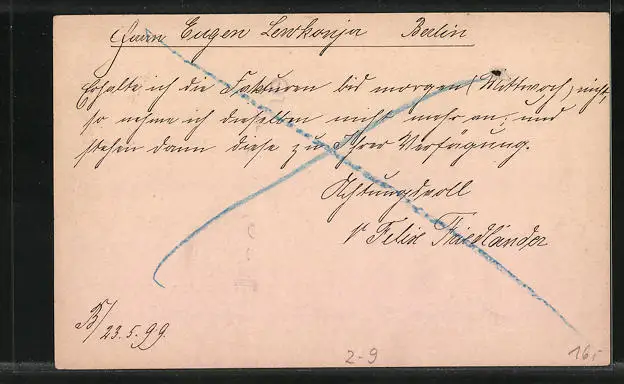 Herrn Eugen Lewkonja Berlin
Erhalte ich die Fakturen bis morgen (Mittwoch) nicht,
so nehme ich dieselben nicht mehr an, und
stehen dann diese zu Ihrer Verfügung.
Achtungsvoll
Felix Friedländer
B/ 23.5.99.
2-9
16,-